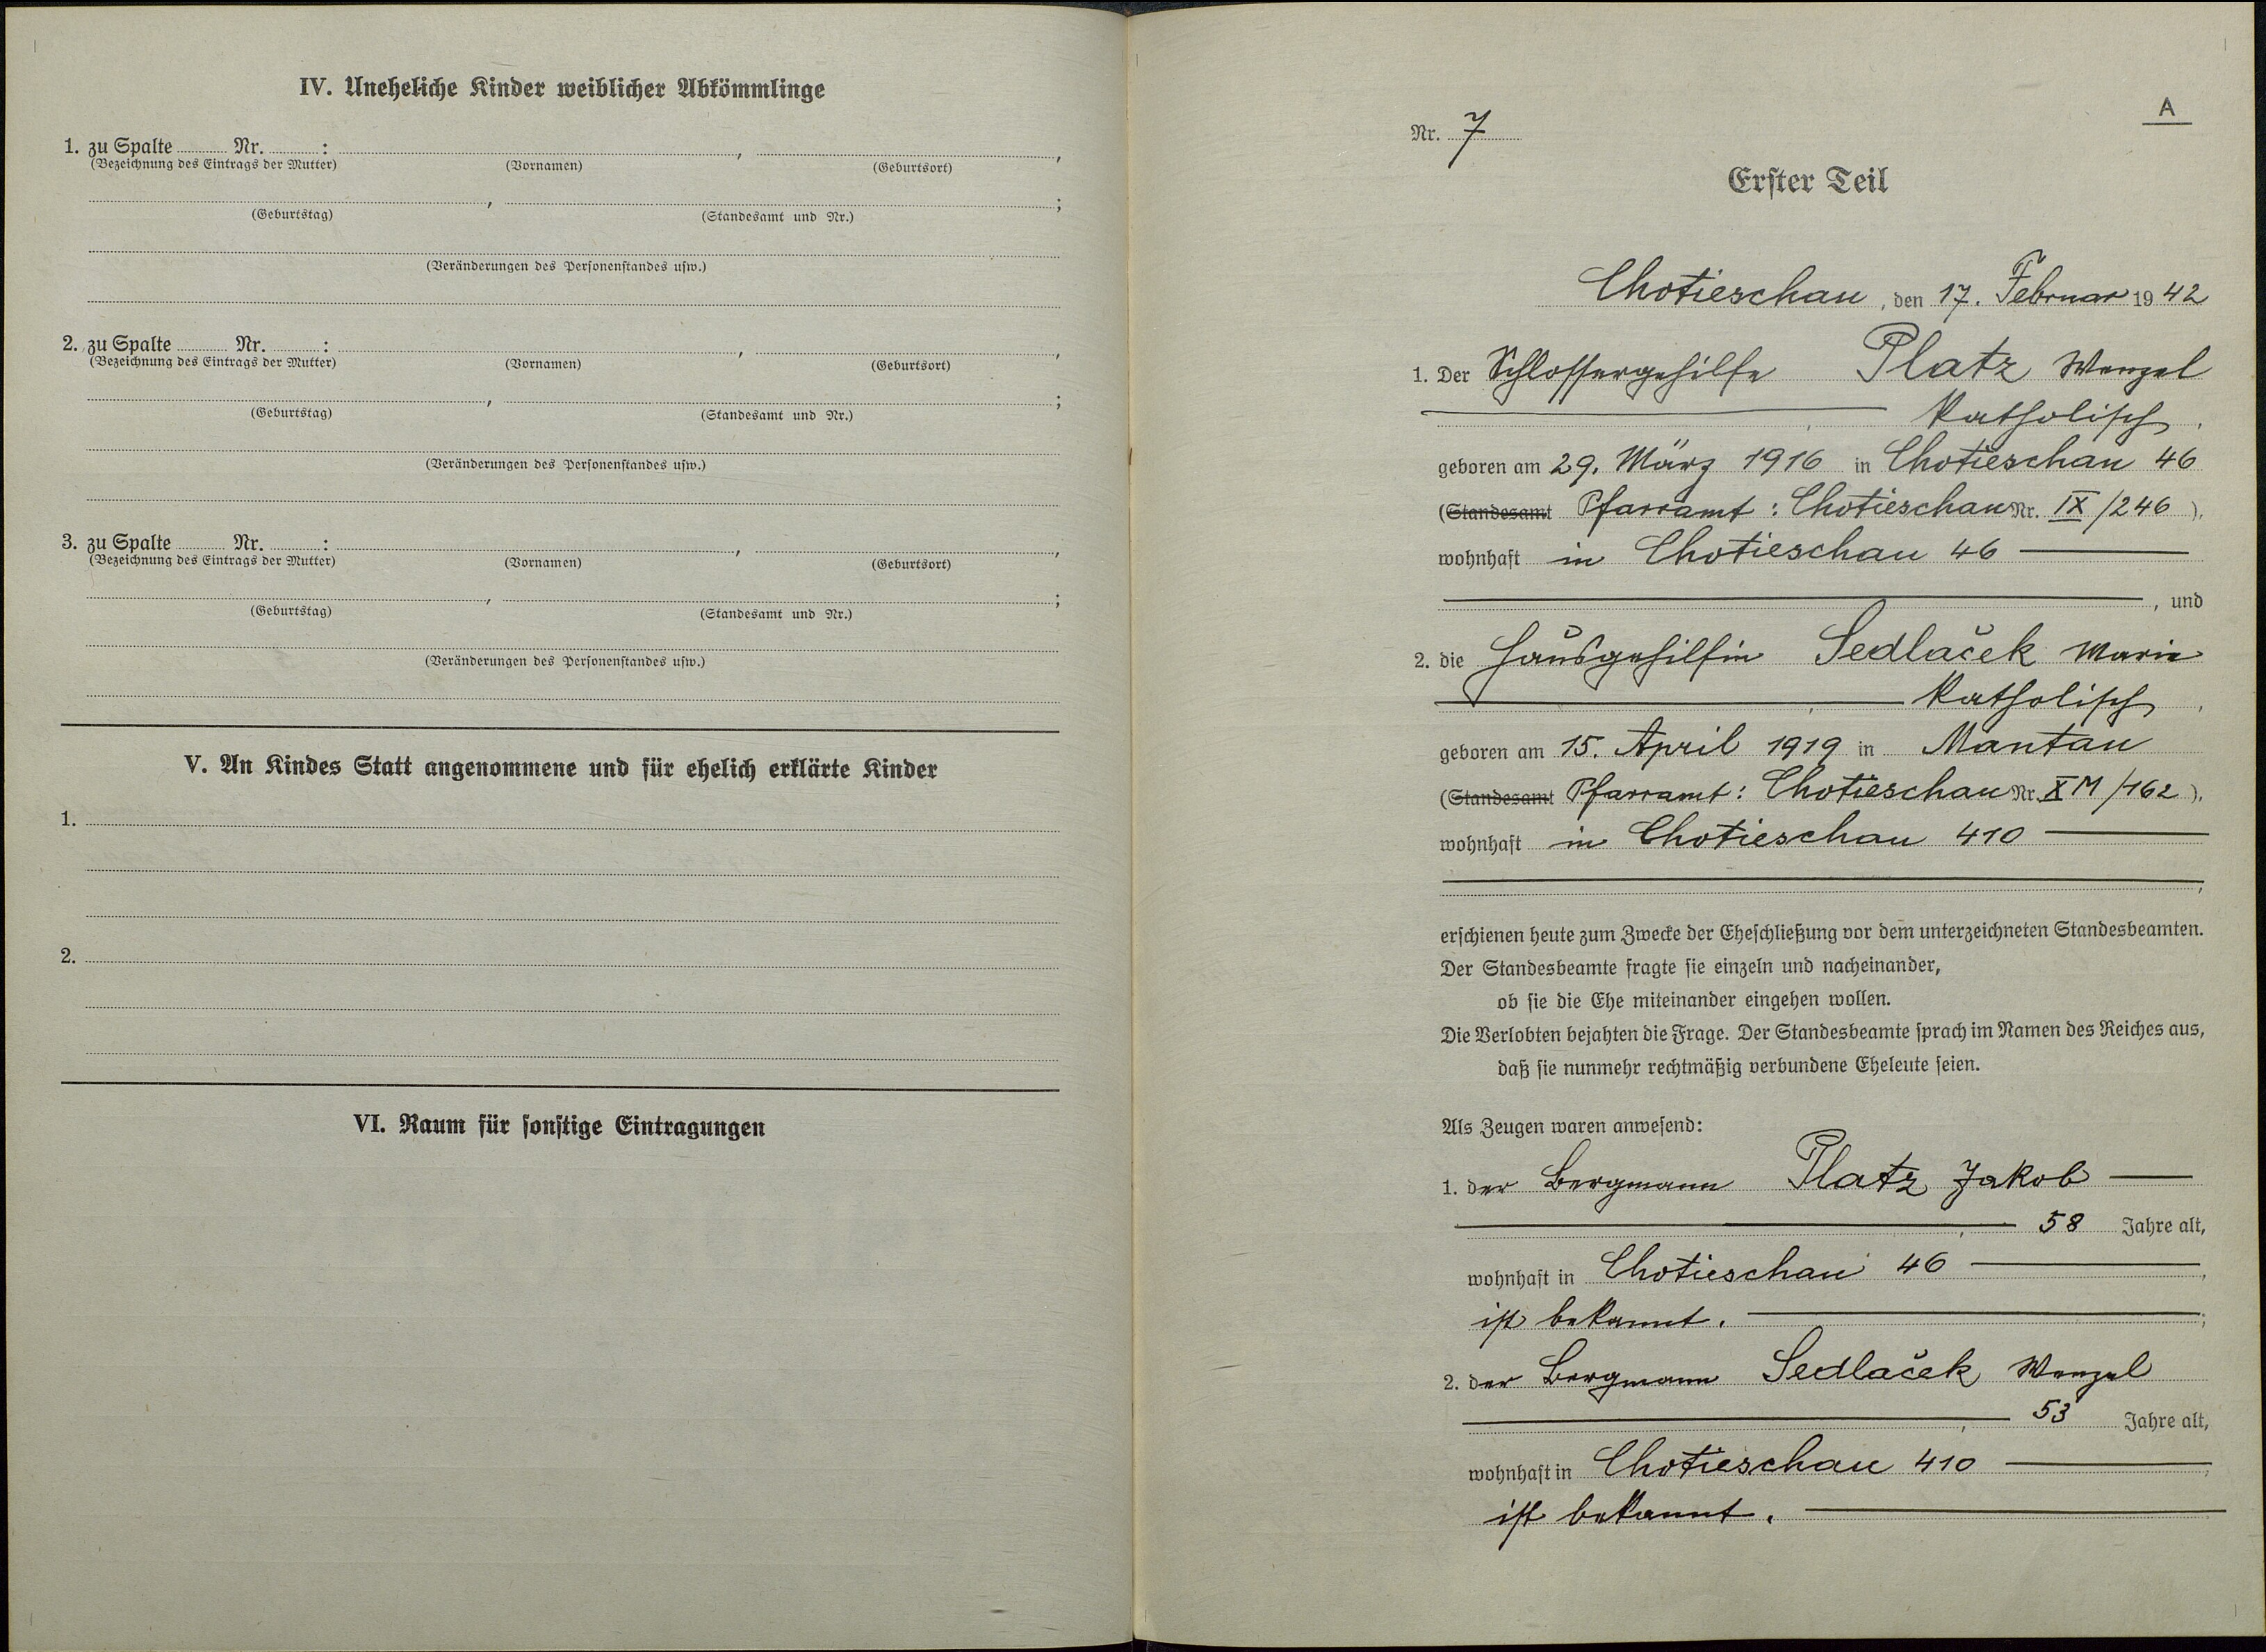 IV. Uneheliche Kinder weiblicher Abkömmlinge
1. zu Spalte Nr. : , ,
(Bezeichnung des Eintrags der Mutter) (Vornamen) (Geburtsort)
, ;
(Geburtstag) (Standesamt und Nr.)
(Veränderungen des Personenstandes usw.)
2. zu Spalte Nr. : , ,
(Bezeichnung des Eintrags der Mutter) (Vornamen) (Geburtsort)
, ;
(Geburtstag) (Standesamt und Nr.)
(Veränderungen des Personenstandes usw.)
3. zu Spalte Nr. : , ,
(Bezeichnung des Eintrags der Mutter) (Vornamen) (Geburtsort)
, ;
(Geburtstag) (Standesamt und Nr.)
(Veränderungen des Personenstandes usw.)
V. An Kindes Statt angenommene und für ehelich erklärte Kinder
1.
2.
VI. Raum für sonstige Eintragungen
A
Nr. 7
Erster Teil
Chotieschau, den 17. Februar 1942
1. Der Schlossergehilfe Platz Wenzel
katholisch,
geboren am 29. März 1916 in Chotieschau 46
(Standesamt Pfarramt: Chotieschau Nr. IX/246),
wohnhaft in Chotieschau 46
, und
2. die Hausgehilfin Sedlaček Marie
katholisch,
geboren am 15. April 1919 in Mantau
(Standesamt Pfarramt: Chotieschau Nr. X M/162),
wohnhaft in Chotieschau 410
,
erschienen heute zum Zwecke der Eheschließung vor dem unterzeichneten Standesbeamten.
Der Standesbeamte fragte sie einzeln und nacheinander,
ob sie die Ehe miteinander eingehen wollen.
Die Verlobten bejahten die Frage. Der Standesbeamte sprach im Namen des Reiches aus,
daß sie nunmehr rechtmäßig verbundene Eheleute seien.
Als Zeugen waren anwesend:
1. der Bergmann Platz Jakob
, 58 Jahre alt,
wohnhaft in Chotieschau 46 ,
ist bekannt. ;
2. der Bergmann Sedlaček Wenzel
, 53 Jahre alt,
wohnhaft in Chotieschau 410 ,
ist bekannt.